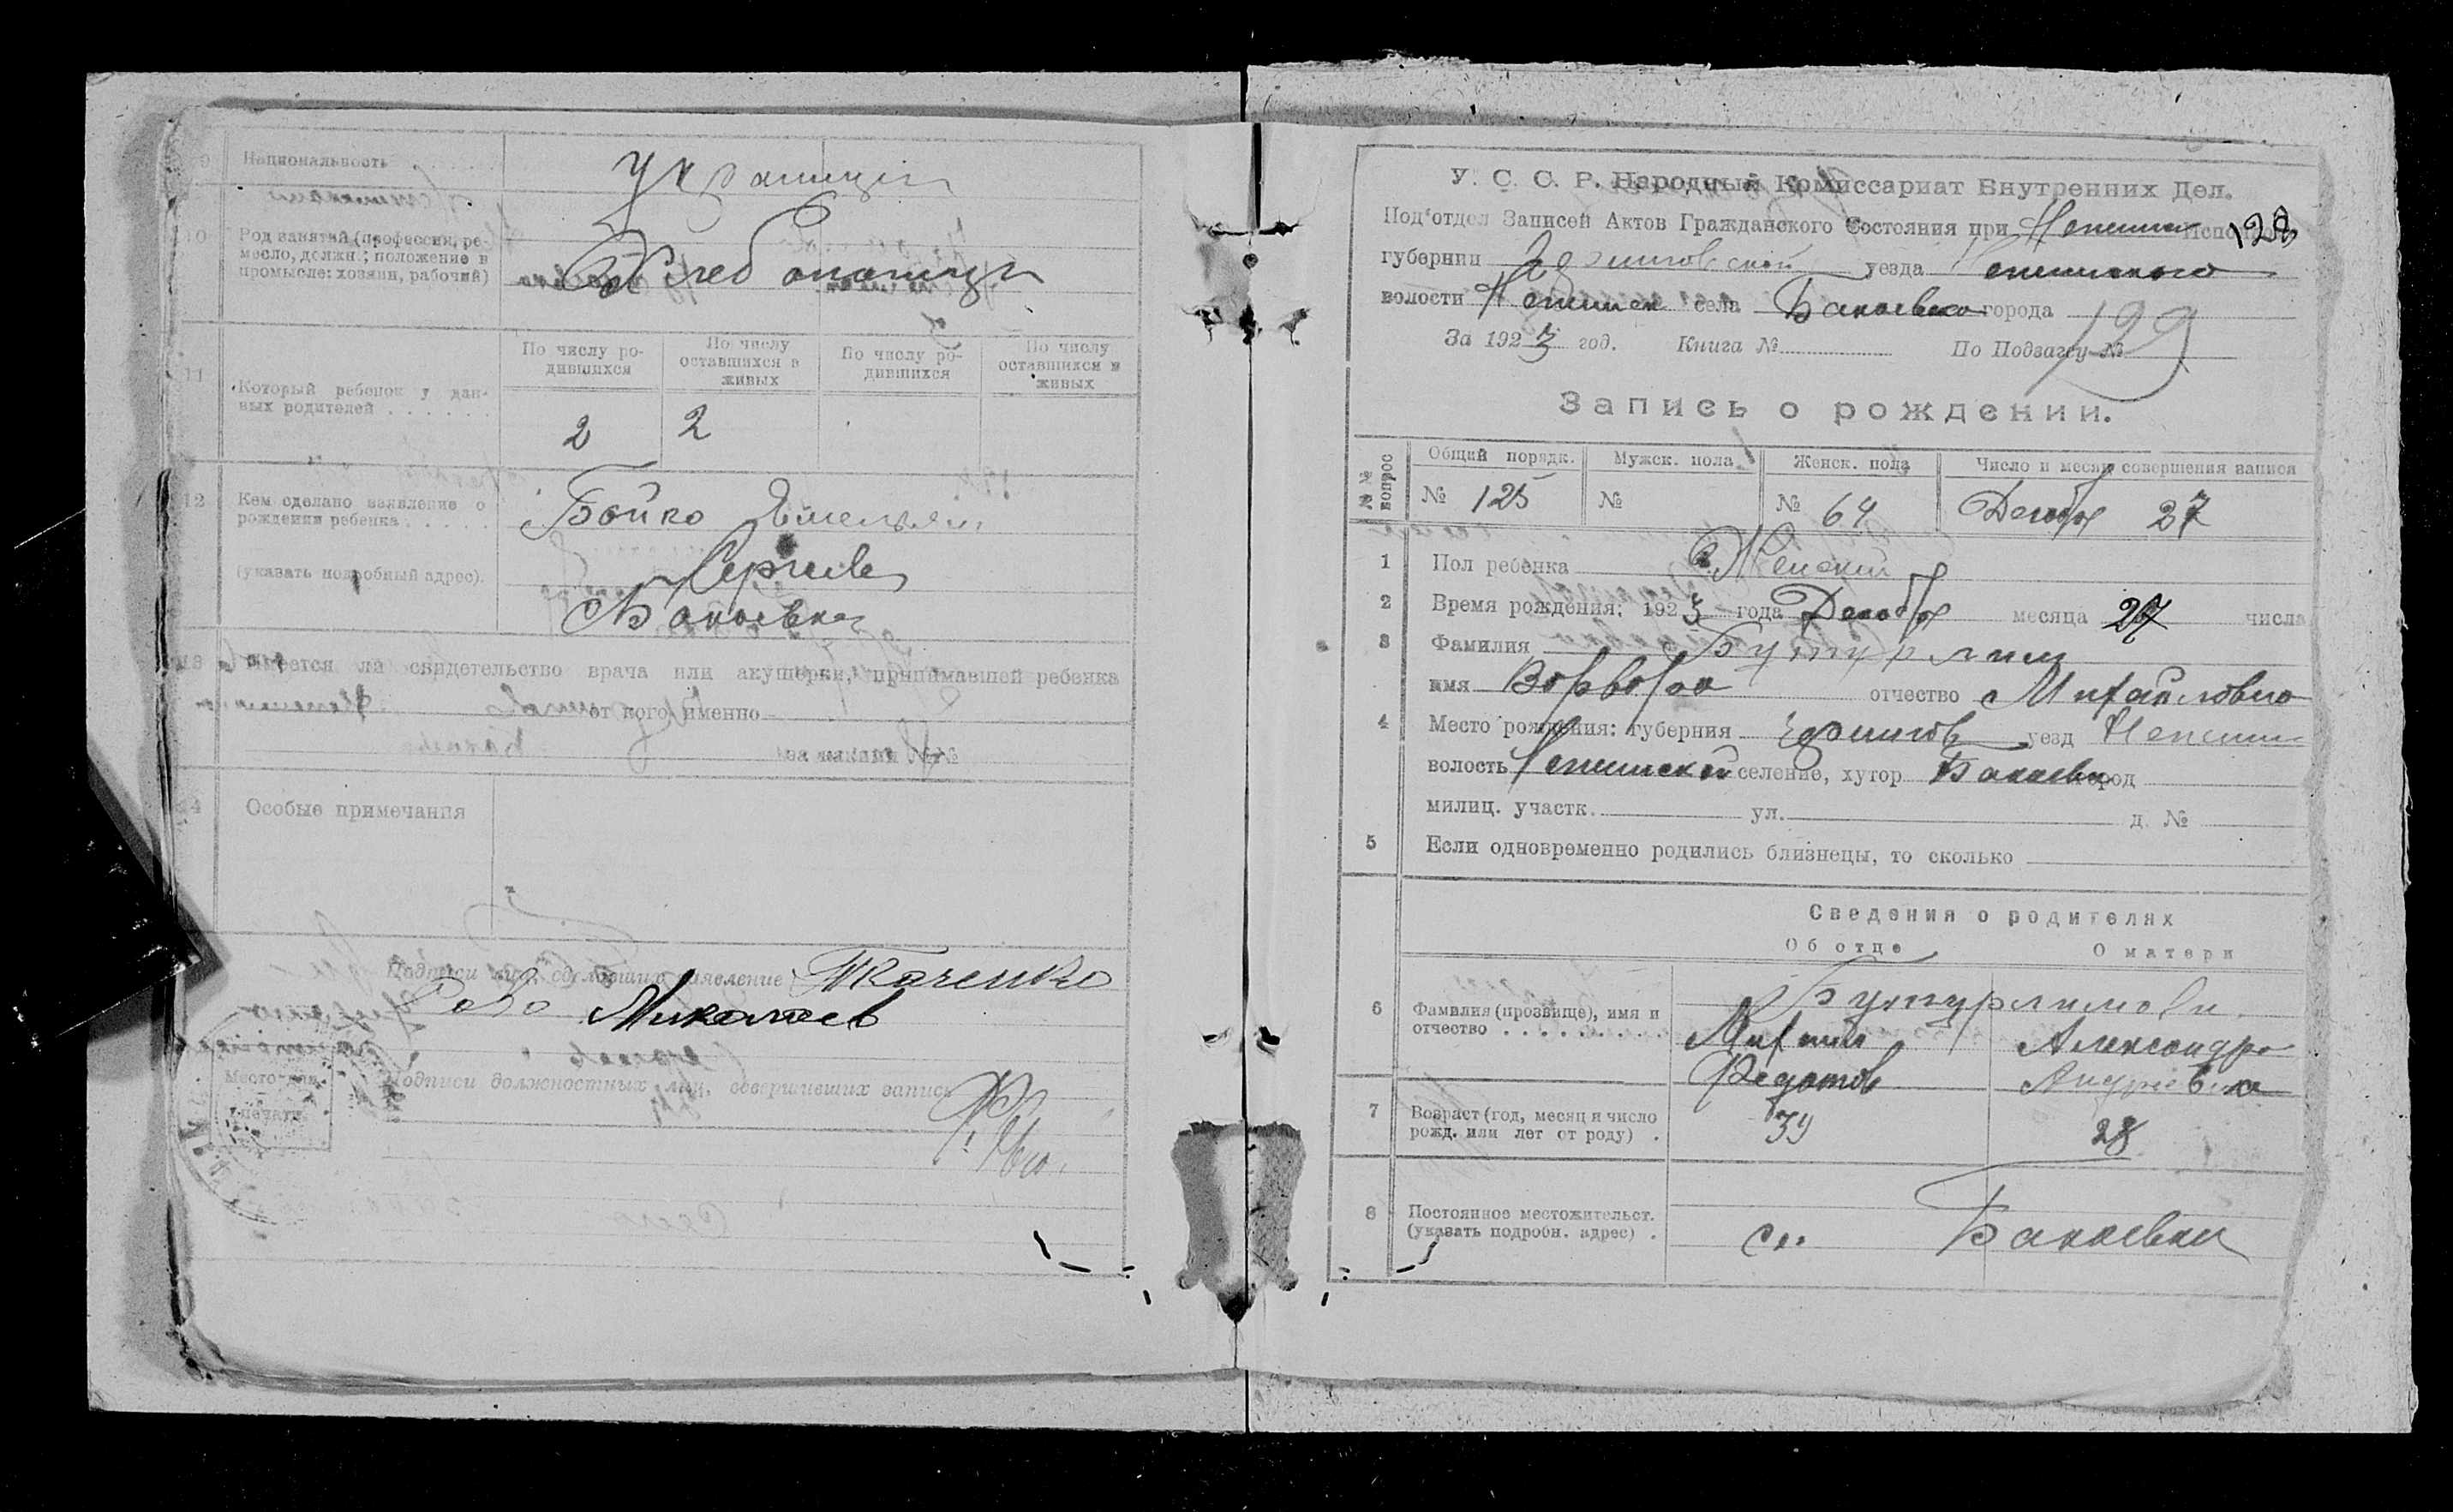 9 Национальность
Украинцы
10 Род занятий (профессии, ре-
месло, должн.; положение в
промысле: хозяин, рабочий)
Хлебопашцы
11 Который ребенок у дан-
ных родителей
По числу ро-
дившихся
По числу
оставшихся в
живых
По числу ро-
дившихся
По числу
оставшихся в
живых
2 2
12 Кем сделано заявление о
рождении ребенка
(указать подробный адрес).
Бойко Емельян
Сергиев
с Бакаевка
13 Имеется ли свидетельство врача или акушерки, принимавшей ребенка
от кого именно
за каким №
14 Особые примечания
Подписи лиц, сделавших заявление Ткаченко
Миколаев
Место для
печати
Подписи должностных лиц, совершивших запись
У. С. С. Р. Народный Комиссариат Внутренних Дел.
Под'отдел Записей Актов Гражданского Состояния при
128
губернии Черниговской уезда
волости села Бакаевка города
199
За 1923 год. Книга № По Подзагсу №
Запись о рождении.
№№ вопрос
Общий порядк. Мужск. пола Женск. пола Число и месяц совершения записи
№ 125 № № 64 Декабря 27
1 Пол ребенка Женский
2 Время рождения: 1923 года Декабря месяца 27 числа
3 Фамилия Бутурлим
имя Ворвора отчество Михайловна
4 Место рождения: губерния Чернигов уезд
волость селение, хутор Бакаевка город
милиц. участк. ул. д. №
5 Если одновременно родились близнецы, то сколько
Сведения о родителях
Об отце О матери
6 Фамилия (прозвище), имя и
отчество
Бутурлимови
Михаил Александра
Федотов Андриевна
7 Возраст (год, месяц и число
рожд. или лет от роду)
39 28
8 Постоянное местожительст.
(указать подробн. адрес)
с. Бакаевки